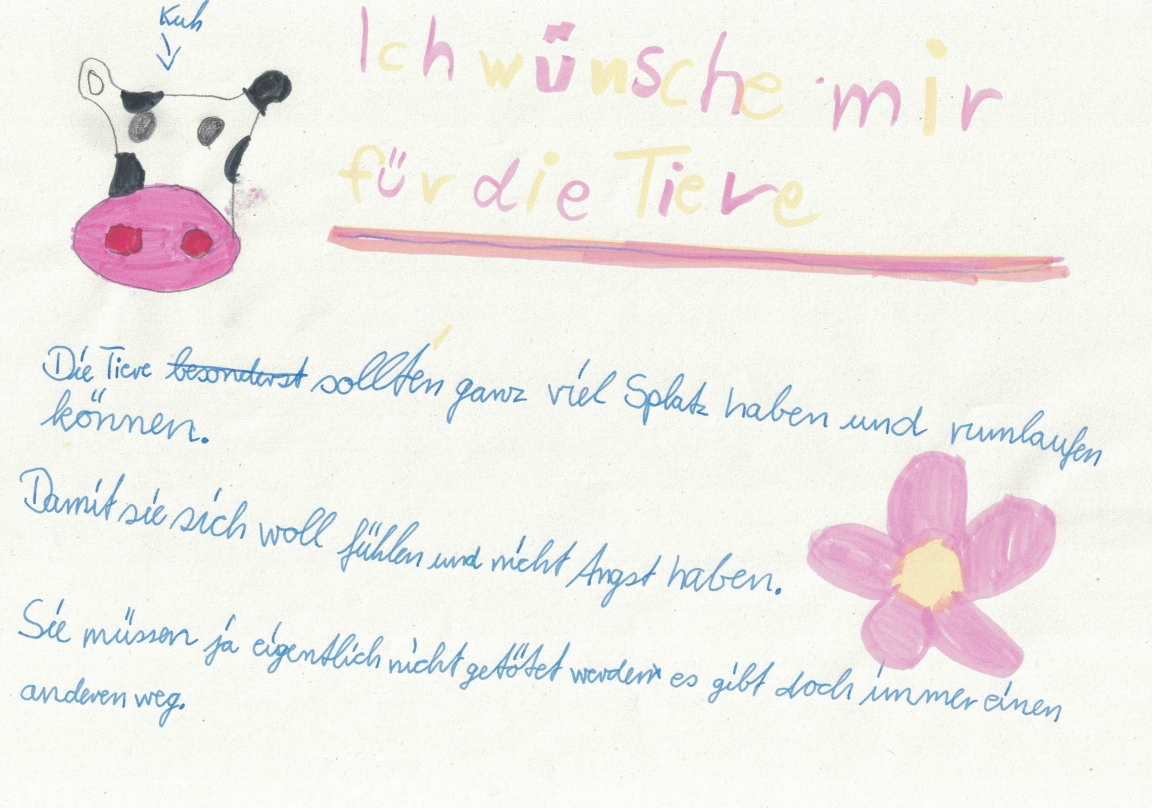 Kuh
Ich wünsche mir
für die Tiere
Die Tiere besonderst sollten ganz viel Splatz haben und rumlaufen
können.
Damit sie sich woll fühlen und nicht Angst haben.
Sie müssen ja eigentlich nicht getötet werden es gibt doch immer einen
anderen weg.